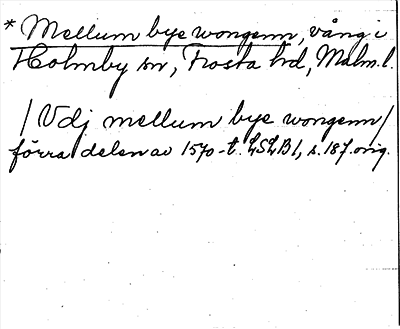 * Mellum bye wongenn, vång i
Holmby sn, Frosta hd, Malm. l.
/Vdj mellum bye wongenn/
förra delen av 1570-t. LSLB1, s. 187. orig.